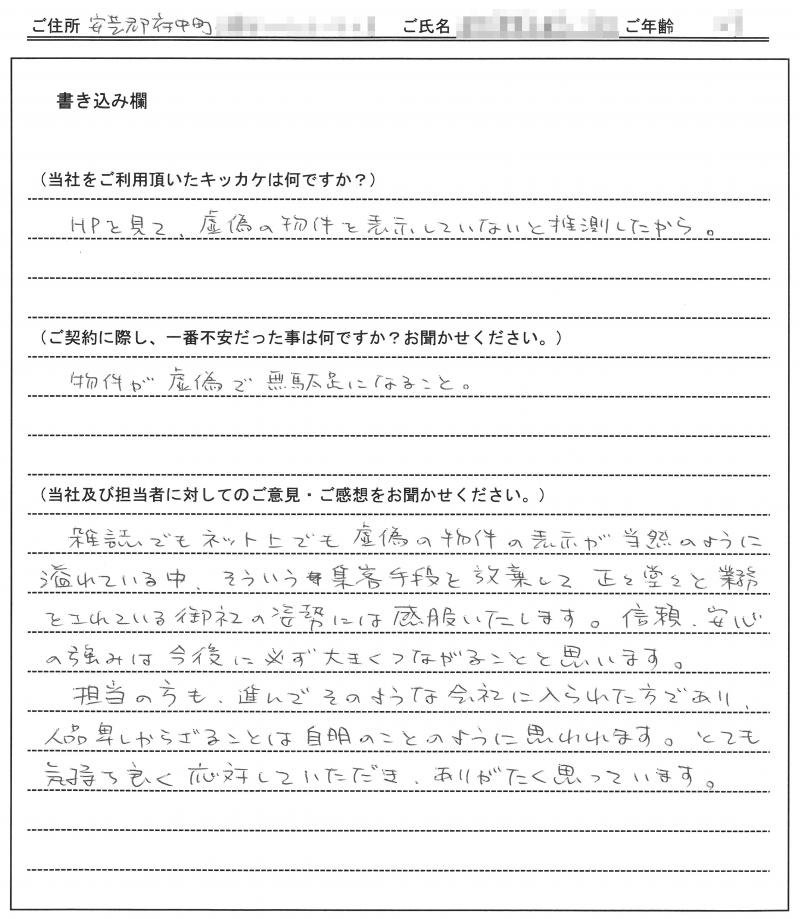 ご住所 安芸郡府中町 ご氏名 ご年齢
書き込み欄
（当社をご利用頂いたキッカケは何ですか？）
HPを見て、虚偽の物件を表示していないと推測したから。
（ご契約に際し、一番不安だった事は何ですか？お聞かせください。）
物件が虚偽で無駄足になること。
（当社及び担当者に対してのご意見・ご感想をお聞かせください。）
雑誌でもネット上でも虚偽の物件の表示が当然のように
溢れている中、そういう集客手段を放棄して正々堂々と業務
をされている御社の姿勢には感服いたします。信頼、安心
の強みは今後に必ず大きくつながることと思います。
担当の方も、進んでそのような会社に入られた方であり、
人品卑しからざることは自明のことのように思われます。とても
気持ち良く応対していただき、ありがたく思っています。